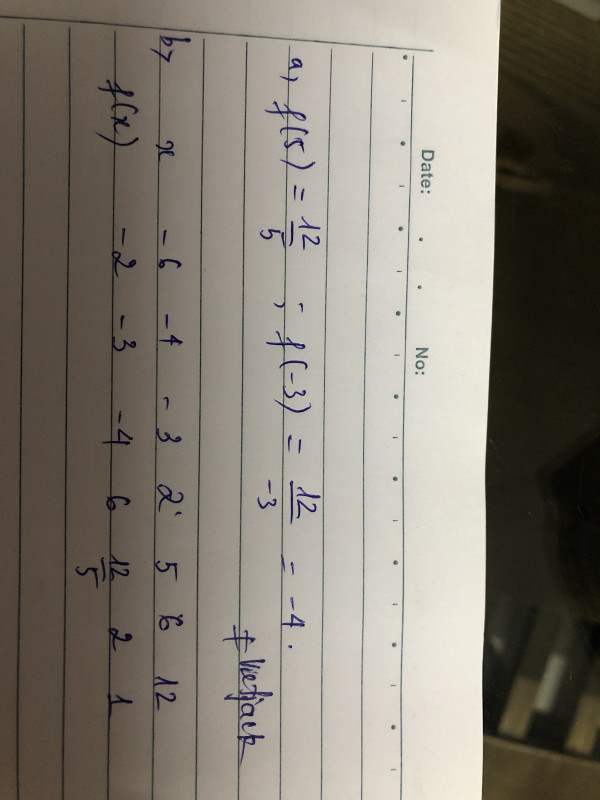 Date: No:
a, f(5) = 12/5 ; f(-3) = 12/-3 = -4.
+ Vietjack
b, x -6 -4 -3 2 5 6 12
f(x) -2 -3 -4 6 12/5 2 1